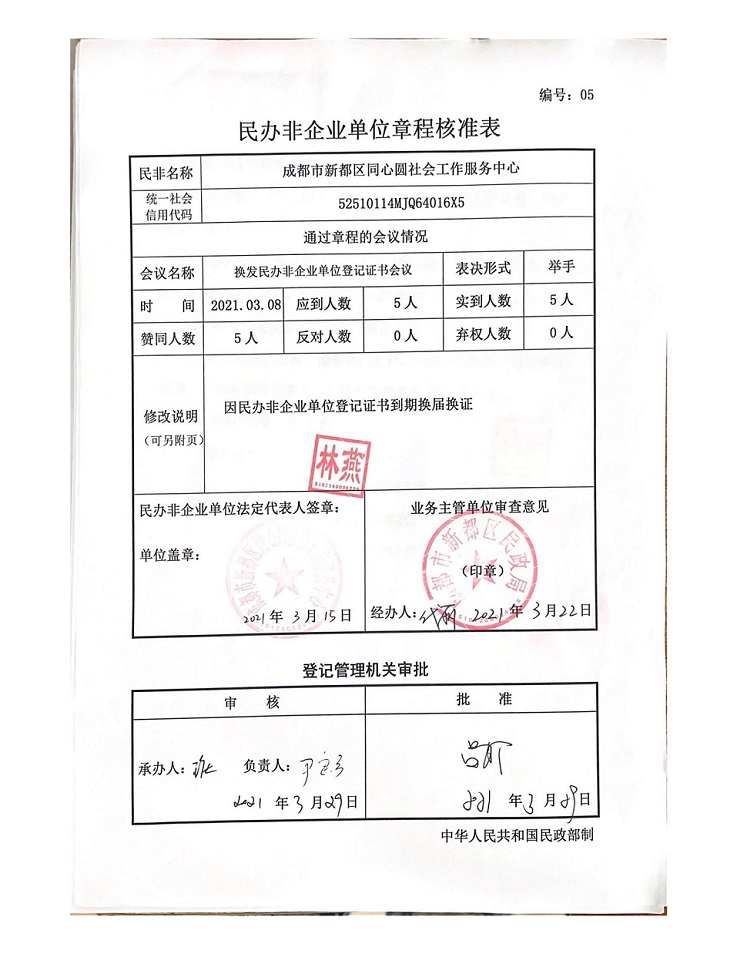 编号：05
民办非企业单位章程核准表
民非名称 成都市新都区同心圆社会工作服务中心
统一社会
信用代码
52510114MJQ64016X5
通过章程的会议情况
会议名称 换发民办非企业单位登记证书会议 表决形式 举手
时 间 2021.03.08 应到人数 5人 实到人数 5人
赞同人数 5人 反对人数 0人 弃权人数 0人
因民办非企业单位登记证书到期换届换证
修改说明
（可另附页）
林燕
民办非企业单位法定代表人签章： 业务主管单位审查意见
单位盖章：
成都市新都区民政局
（印章）
2021年3月15日 经办人： 2021年3月22日
登记管理机关审批
审 核 批 准
承办人： 负责人：
2021年3月29日 2021年3月29日
中华人民共和国民政部制